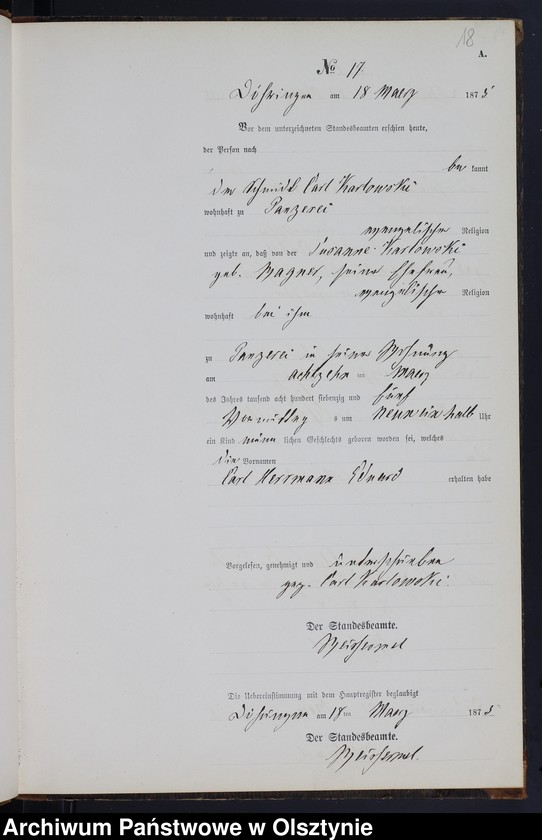 18
A.
No 17.
Döhringen am 18 Maerz 1875
Vor dem unterzeichneten Standesbeamten erschien heute,
der Person nach
be kannt
der Schmidt Carl Karlowski
wohnhaft zu Panzerei
evangelischer Religion
und zeigte an, daß von der Susanne Karlowski
geb. Wagner, seiner Ehefrau,
evangelischer Religion
wohnhaft bei ihm
zu Panzerei in seiner Wohnung
am achtzehn ten Maerz
des Jahres tausend acht hundert siebenzig und fünf
Vormittag s um neun ein halb Uhr
ein Kind männ lichen Geschlechts geboren worden sei, welches
die Vornamen
Carl Herrmann Eduard erhalten habe
Vorgelesen, genehmigt und unterschrieben
gez. Carl Karlowski.
Der Standesbeamte.
Die Uebereinstimmung mit dem Hauptregister beglaubigt
Döhringen am 18ten Maerz 1875
Der Standesbeamte.
Archiwum Państwowe w Olsztynie